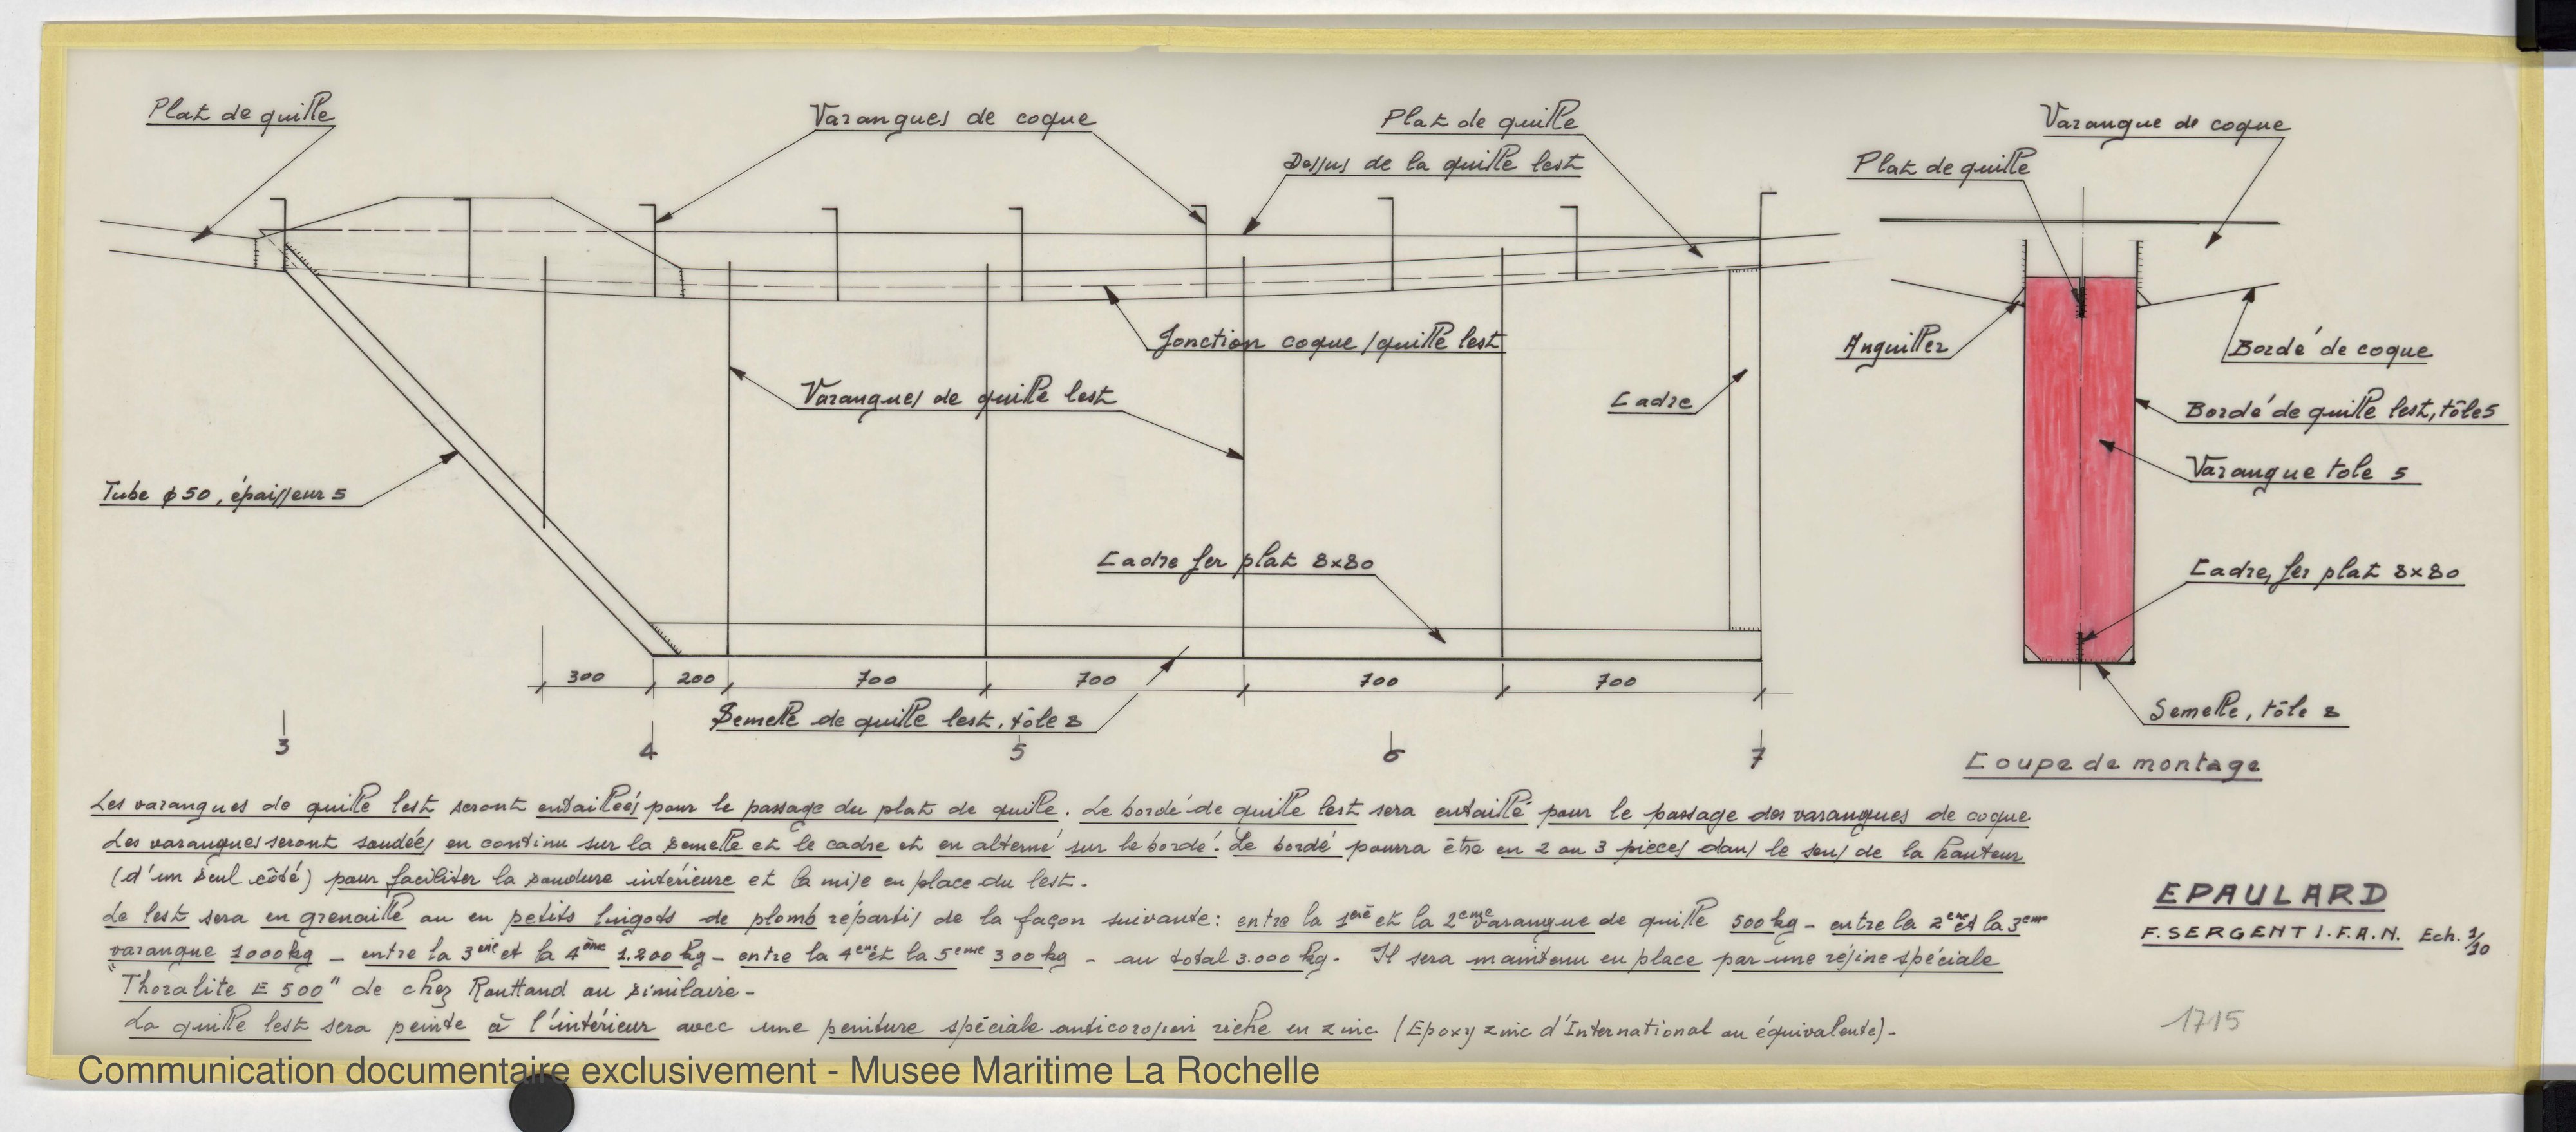 Plat de quille
Varangues de coque
Plat de quille
Dessus de la quille lest
Varangue de coque
Plat de quille
Jonction coque/quille lest
Anguiller
Bordé de coque
Varangues de quille lest
Cadre
Bordé de quille lest, tôle 5
Varangue tole 5
Tube φ50, épaisseur 5
Cadre fer plat 8x80
Cadre, fer plat 8x80
300 200 700 700 700 700
Semelle de quille lest, tôle 8
Semelle, tôle 8
3 4 5 6 7
Coupe de montage
Les varangues de quille lest seront entaillées pour le passage du plat de quille. Le bordé de quille lest sera entaillé pour le passage des varangues de coque
Les varangues seront soudées en continu sur la semelle et le cadre et en alterné sur le bordé. Le bordé pourra être en 2 ou 3 pieces dans le sens de la hauteur
(d'un seul côté) pour faciliter la soudure intérieure et la mise en place du lest.
Le lest sera en grenaille ou en petits lingots de plomb répartis de la façon suivante: entre la 1ere et la 2eme varangue de quille 500 kg - entre la 2eme et la 3eme
varangue 1000 kg - entre la 3eme et la 4ème 1.200 kg - entre la 4eme et la 5eme 300 kg - au total 3.000 kg. Il sera maintenu en place par une résine spéciale
"Thoralite E 500" de chez Rauttand ou similaire -
La quille lest sera peinte à l'intérieur avec une peinture spéciale anticorosion riche en zinc (Epoxy zinc d'International ou équivalente) -
EPAULARD
F. SERGENT I.F.A.N. Ech. 1/10
1715
Communication documentaire exclusivement - Musee Maritime La Rochelle